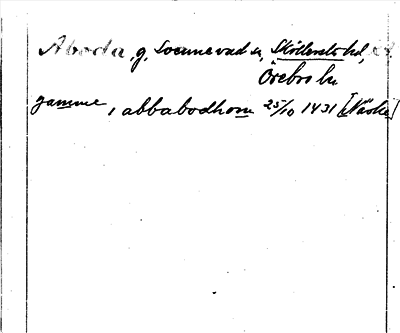 Aboda, g, Socunevad sn, Sköllersta hd,
Örebro län
gamme, i abbabodhom 25/10 1431 [Närke]